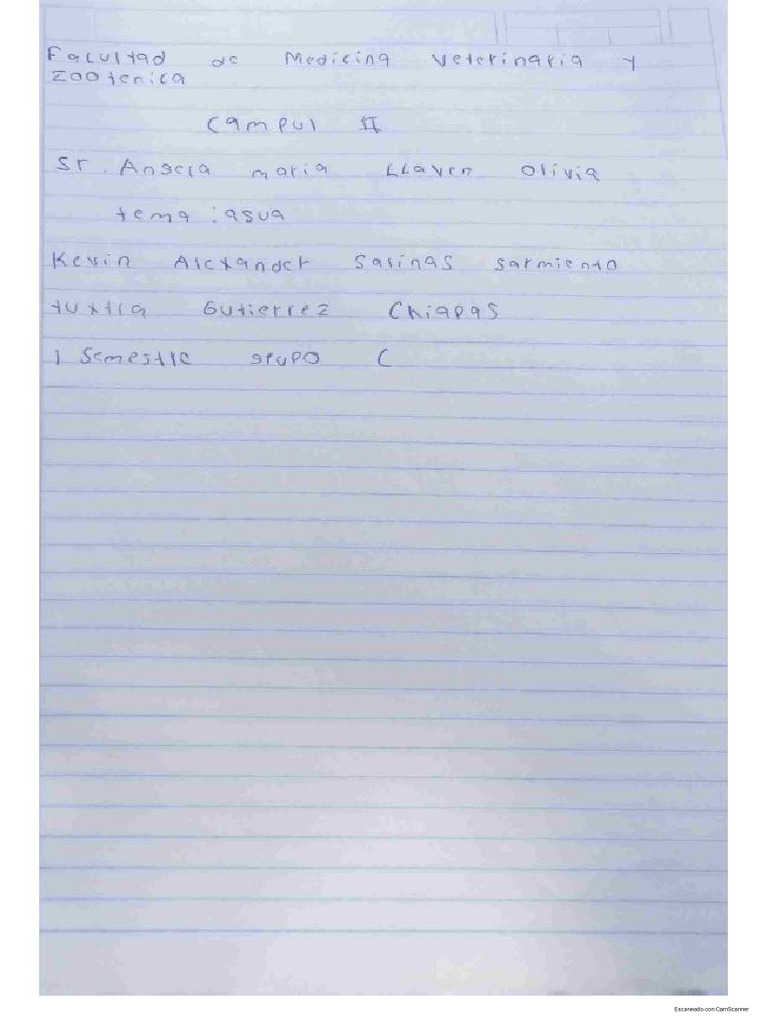 Facultad de Medicina Veterinaria y
Zootenica
Campus II
Sr. Angela maria LLaven Olivia
tema : agua
Kevin Alexander Salinas Sarmiento
tuxtla Gutierrez Chiapas
1 Semestre grupo C
Escaneado con CamScanner